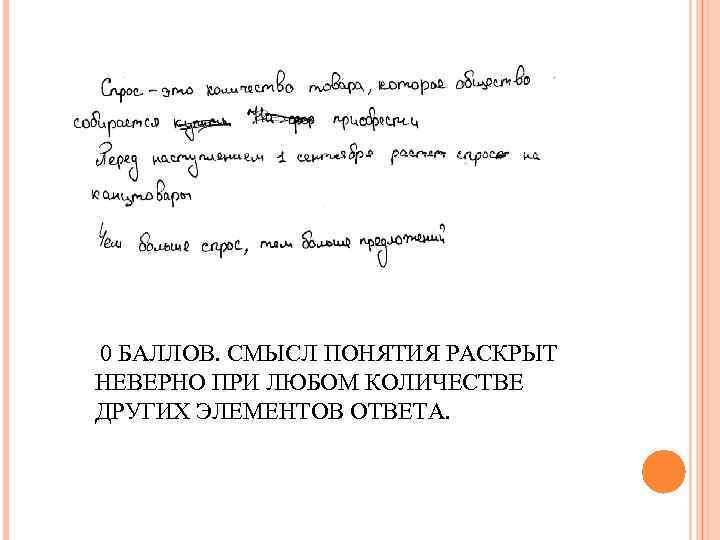 Спрос – это количество товара, которое общество
собирается приобрести
Перед наступлением 1 сентября растет спрос на
канцтовары
Чем больше спрос, тем больше предложений
0 БАЛЛОВ. СМЫСЛ ПОНЯТИЯ РАСКРЫТ
НЕВЕРНО ПРИ ЛЮБОМ КОЛИЧЕСТВЕ
ДРУГИХ ЭЛЕМЕНТОВ ОТВЕТА.